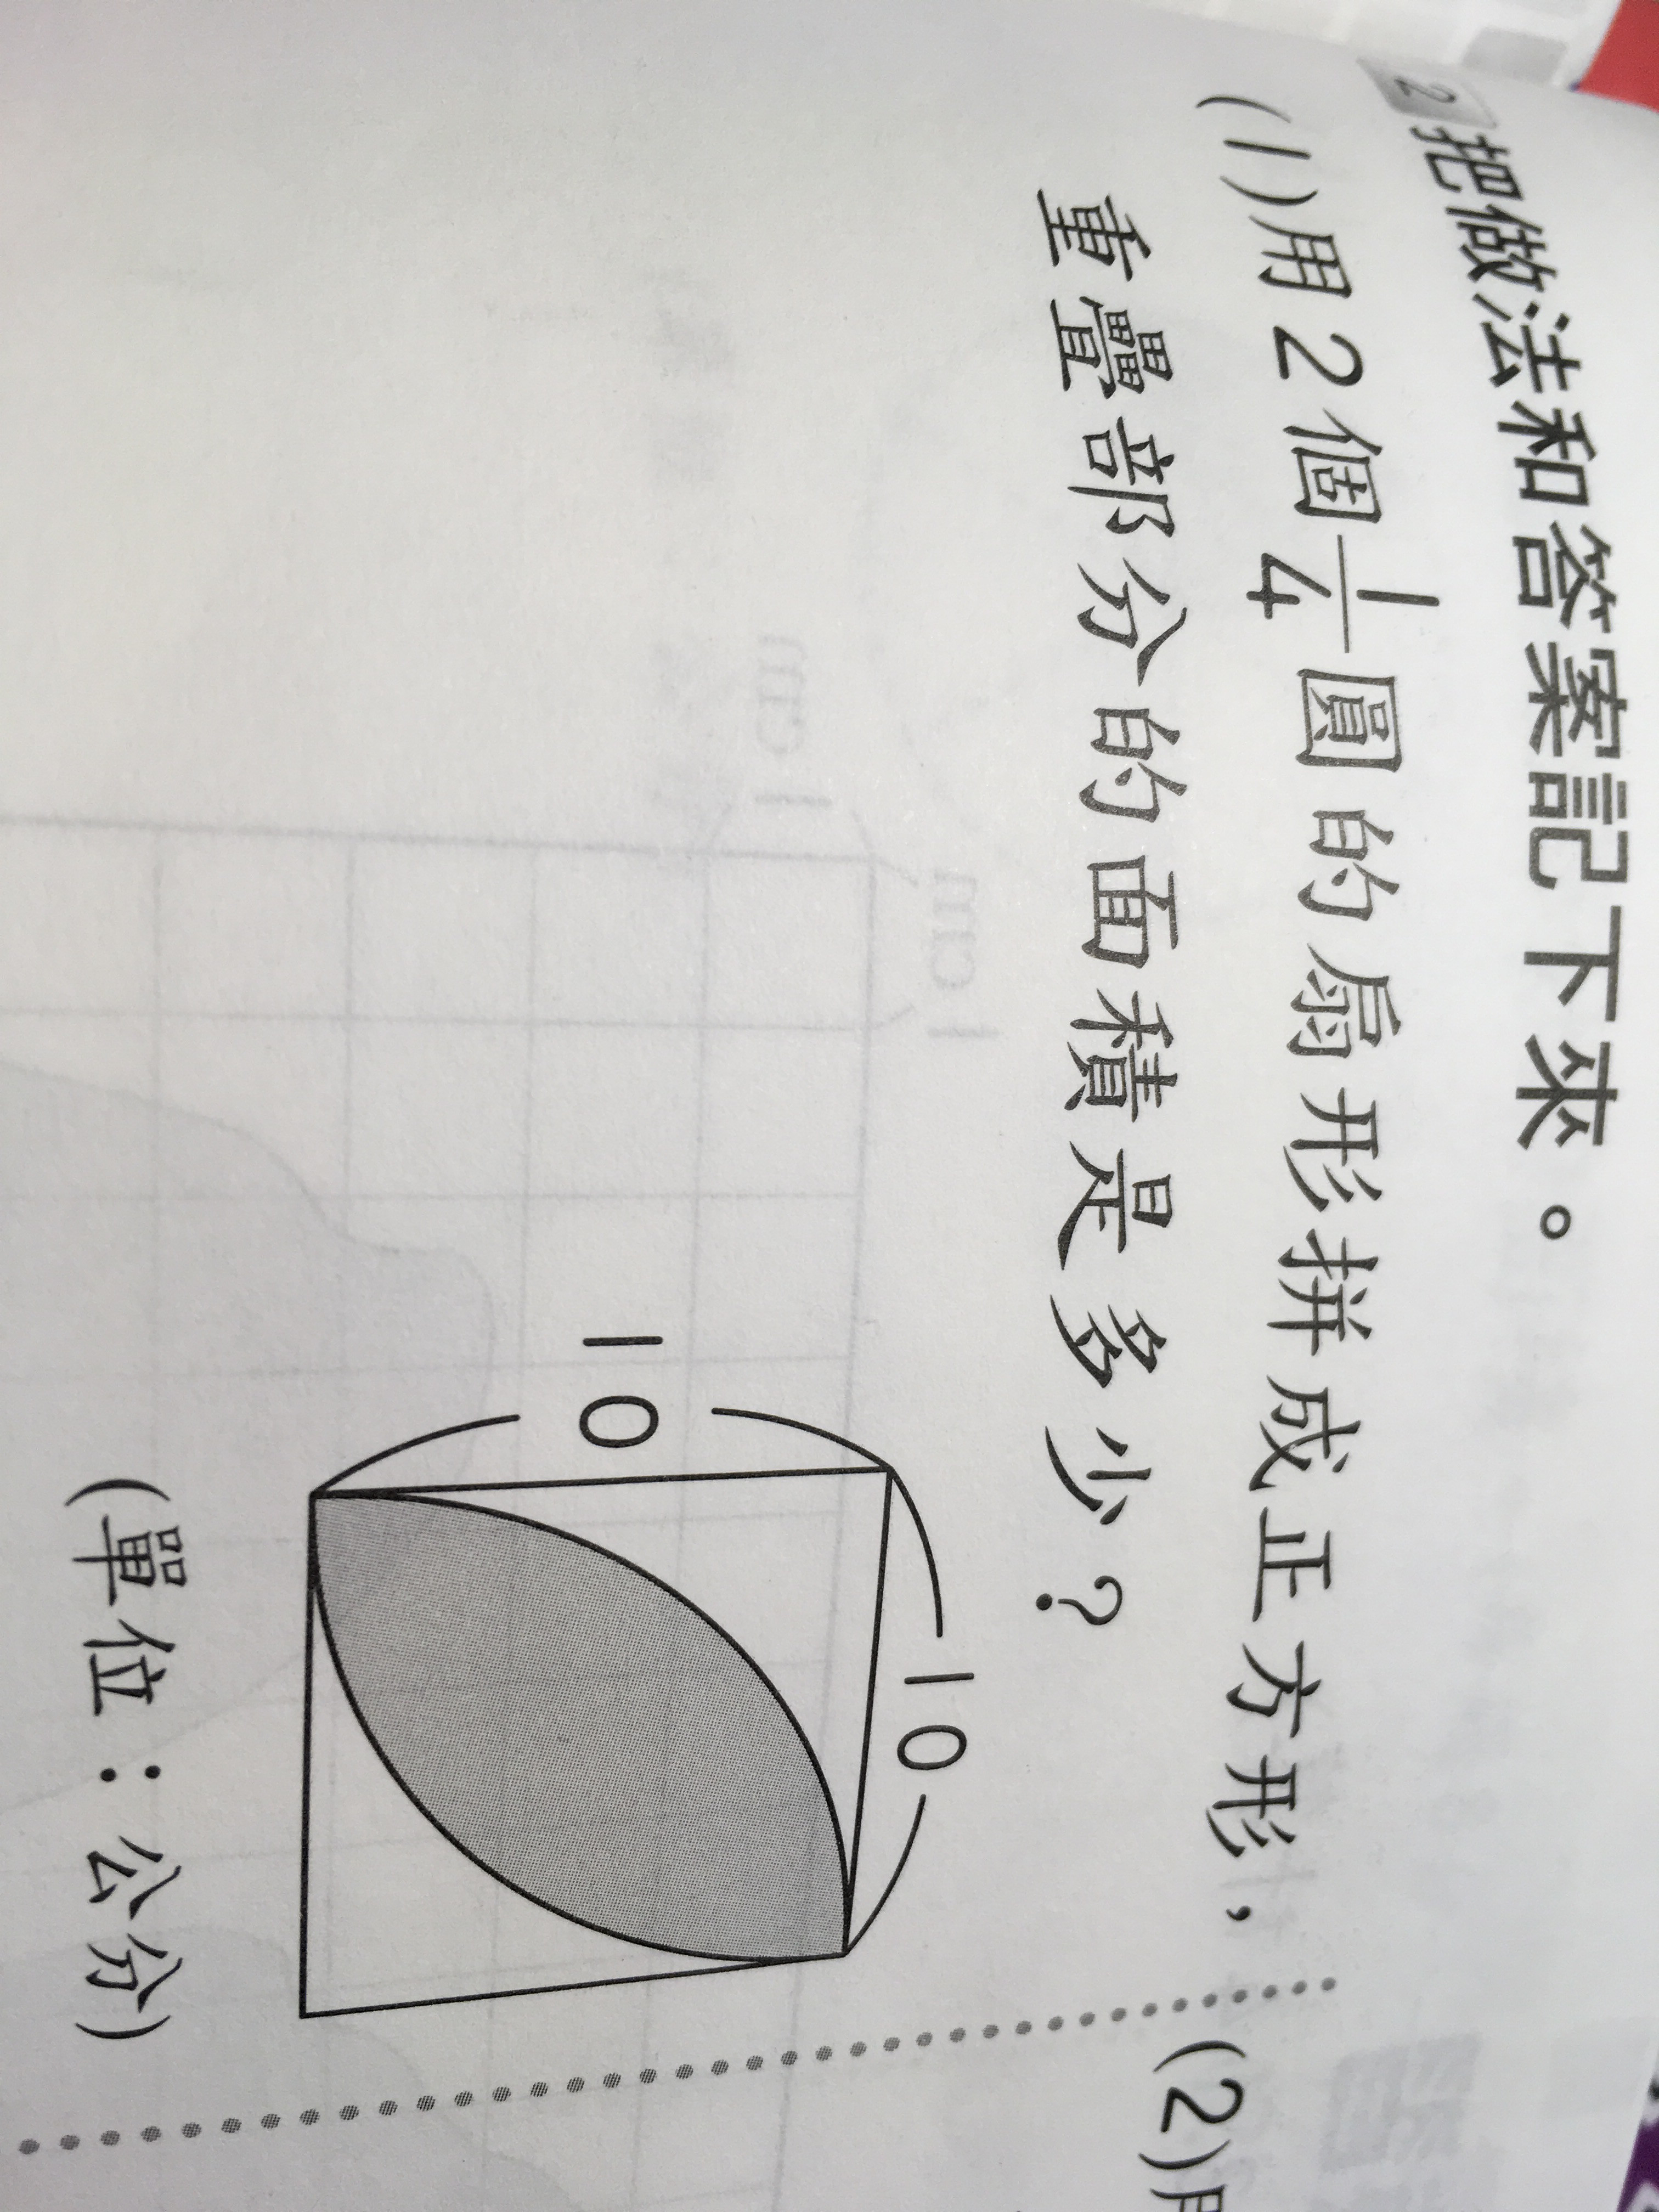 2 把做法和答案記下來。
(1)用2個1/4圓的扇形拼成正方形，
重疊部分的面積是多少？
10
10
(單位：公分)
(2)
1 cm
1 cm